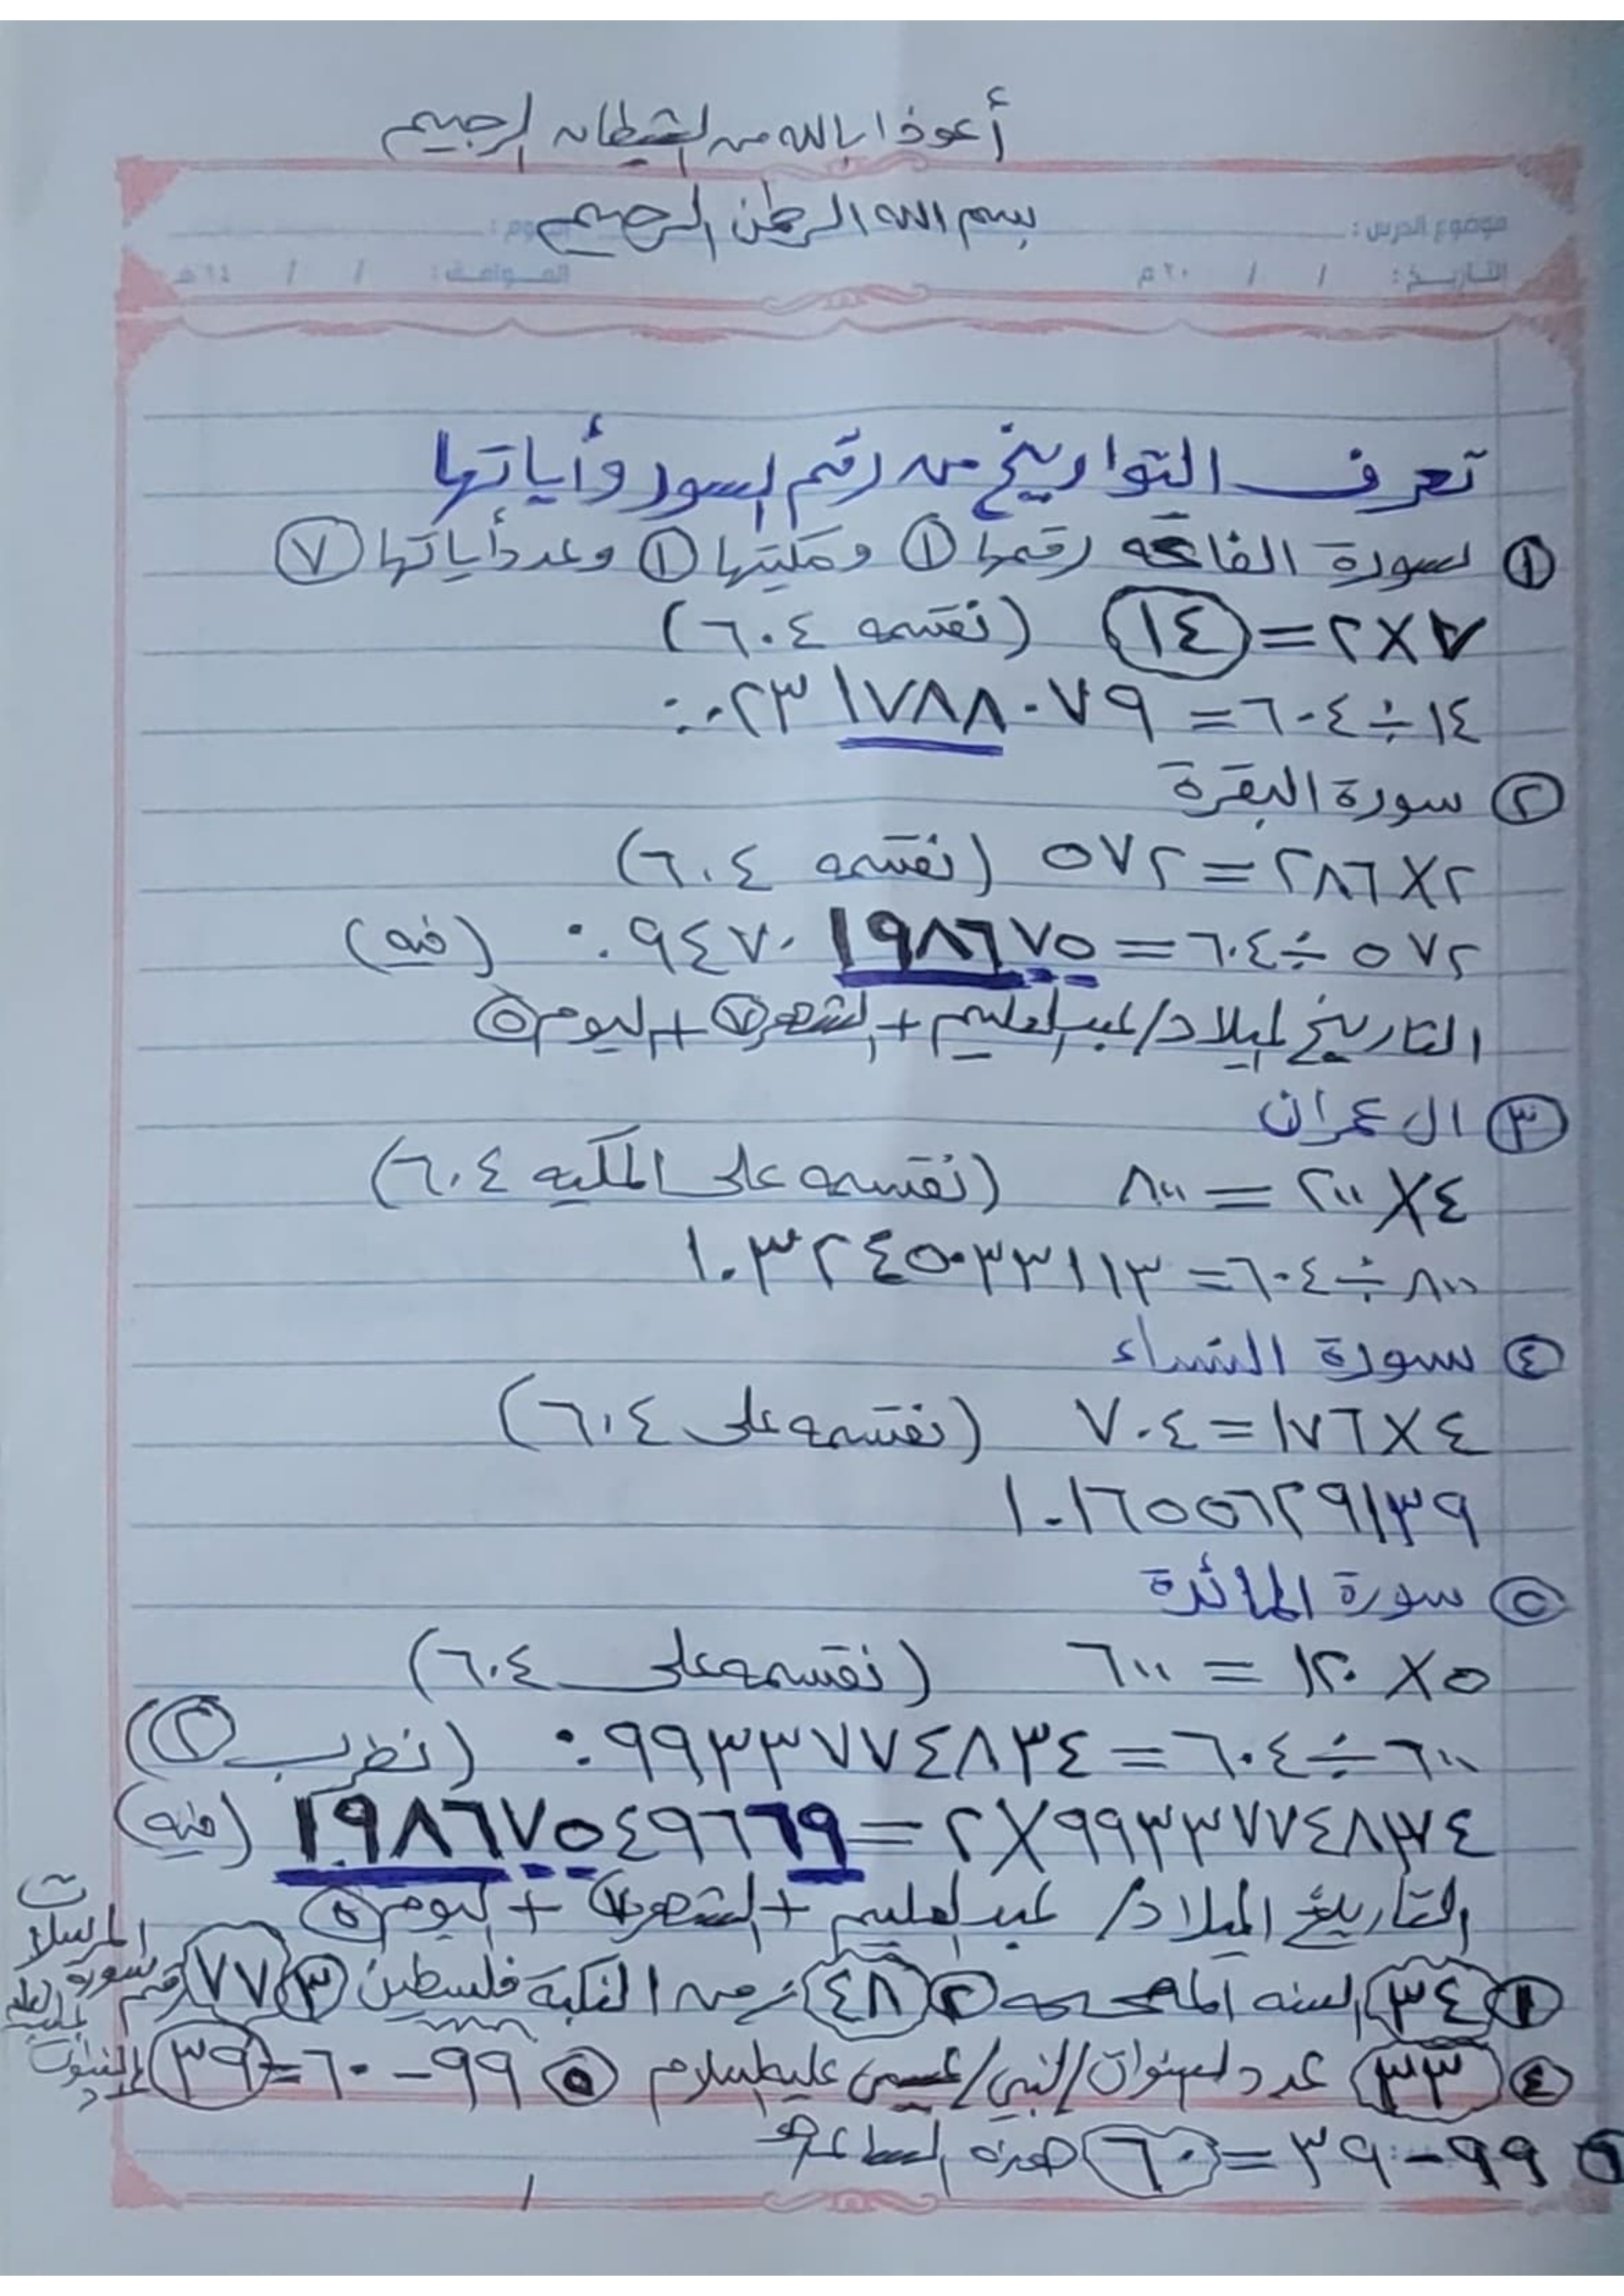 أعوذا بالله من الشيطان الرجيم
بسم الله الرحمن الرحيم
موضوع الدرس :
اليوم :
التاريخ : / / ٢٠ م
الموافق : / / ١٤ هـ
تعرف التواريخ من رقم السور وأياتها
① سورة الفاتحه رقمها ① ومكيتها ① وعدد أياتها ⑦
٧×٢=١٤ (نقسمه ٦٠٤)
١٤÷٦٠٤=٠.٠٢٣١٧٨٨٠٧٩
② سورة البقرة
٢×٢٨٦=٥٧٢ (نقسمه ٦٠٤)
٥٧٢÷٦٠٤=٠.٩٤٧٠١٩٨٦٧٥ (فيه)
التاريخ لميلاد/عبدالعليم+الشهر⑦+اليوم⑤
③ ال عمران
٤×٢٠٠=٨٠٠ (نقسمه على المكيه ٦٠٤)
٨٠٠÷٦٠٤=١.٣٢٤٥٠٣٣١١٣
④ سورة النساء
٤×١٧٦=٧٠٤ (نقسمه على ٦٠٤)
١.١٦٥٥٦٢٩١٣٩
⑤ سورة المائدة
٥×١٢٠=٦٠٠ (نقسمه على ٦٠٤)
٦٠٠÷٦٠٤=٠.٩٩٣٣٧٧٤٨٣٤ (نضرب ②)
٩٩٣٣٧٧٤٨٣٤×٢=١٩٨٦٧٥٤٩٦٦٩ (فيه)
التاريخ الميلاد/ عبدالعليم+الشهر⑦+اليوم⑤
① ٣٤ السنه ② ٤٨ زمن النكبة فلسطين ③ ٧٧ رقم سورة المرسلات
④ ٣٣ عدد السنوات/النبي/عيسى عليه السلام ⑤ ٩٩-٦٠=٣٩
⑥ ٩٩-٣٩=٦٠ هذه الساعة